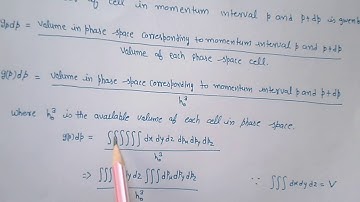 of cell in momentum interval p and p+dp is given
g(p)dp = Volume in phase-space corresponding to momentum interval p and p+dp
Volume of each phase-space cell.
g(p)dp = Volume in phase-space corresponding to momentum interval p and p+dp
h₀³
where h₀³ is the available volume of each cell in phase space.
g(p)dp = ∫∫∫∫∫∫ dx dy dz dpx dpy dpz
h₀³
⇒ ∫∫∫ dy dz ∫∫∫ dpx dpy dpz ∵ ∫∫∫ dx dy dz = V
h₀³